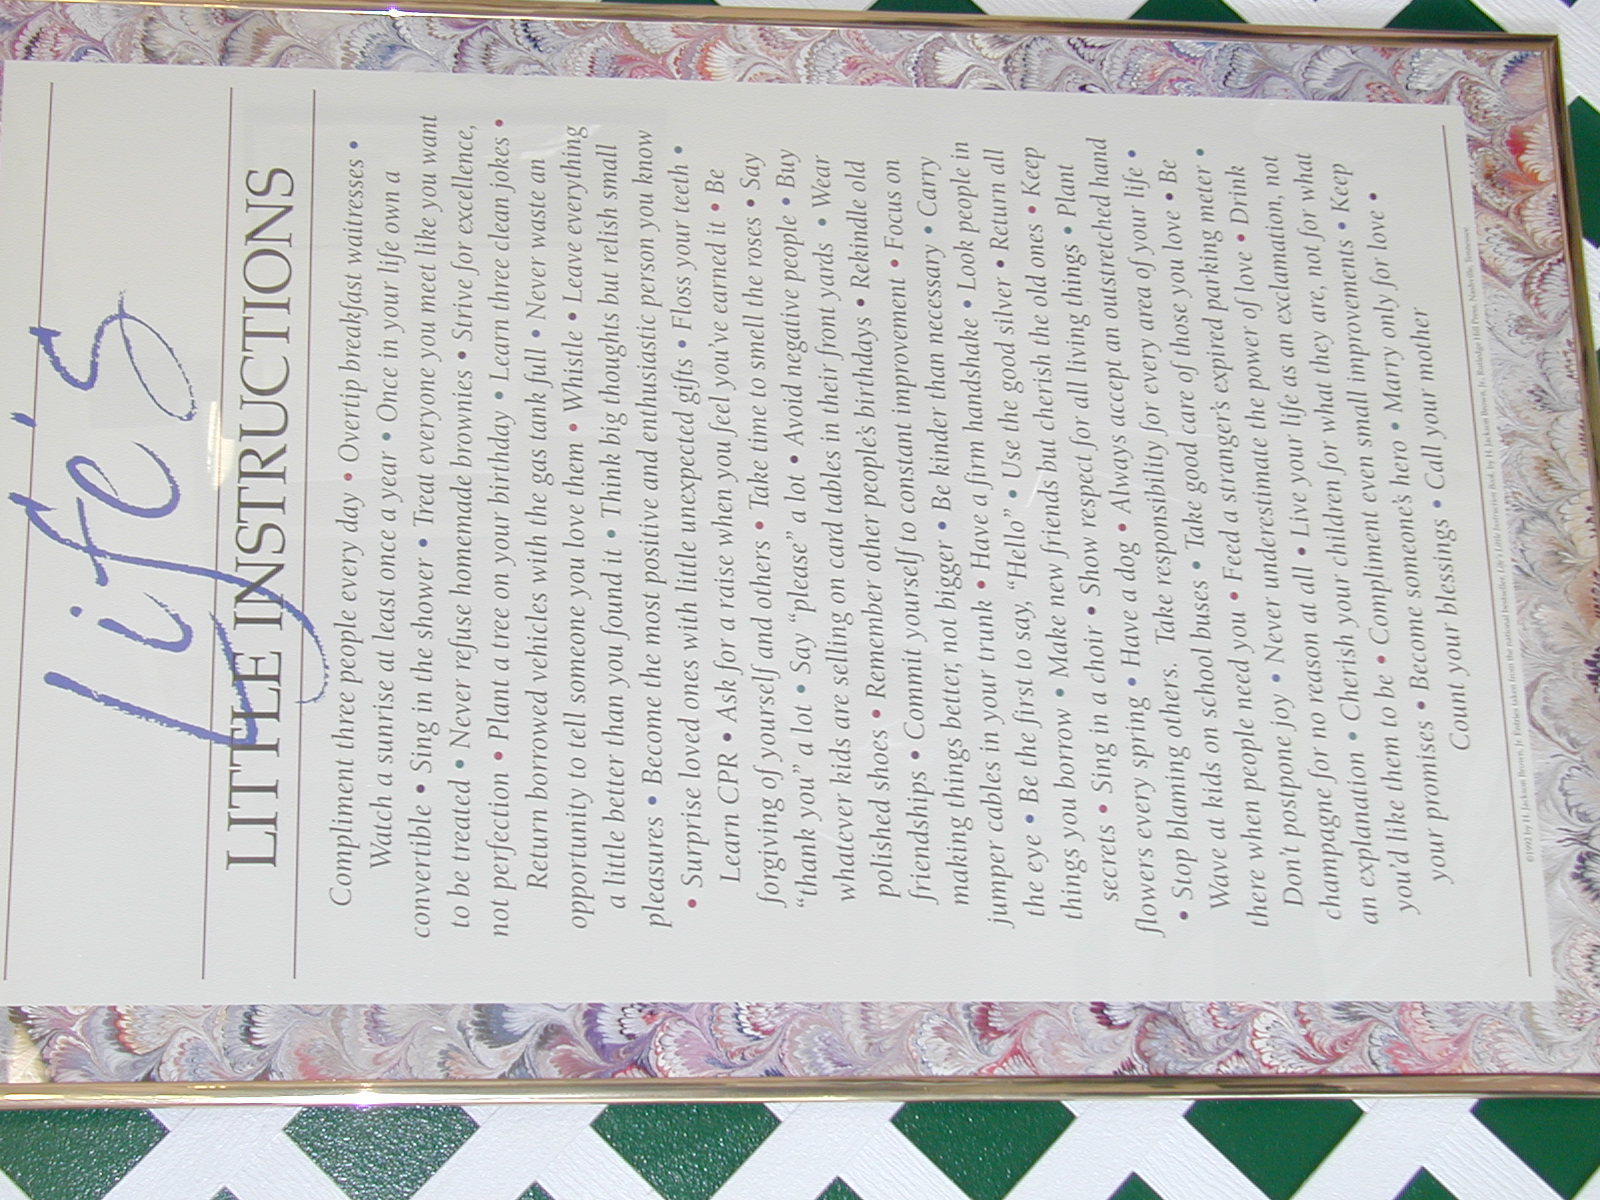 Life's
LITTLE INSTRUCTIONS
Compliment three people every day • Overtip breakfast waitresses •
Watch a sunrise at least once a year • Once in your life own a
convertible • Sing in the shower • Treat everyone you meet like you want
to be treated • Never refuse homemade brownies • Strive for excellence,
not perfection • Plant a tree on your birthday • Learn three clean jokes •
Return borrowed vehicles with the gas tank full • Never waste an
opportunity to tell someone you love them • Whistle • Leave everything
a little better than you found it • Think big thoughts but relish small
pleasures • Become the most positive and enthusiastic person you know
• Surprise loved ones with little unexpected gifts • Floss your teeth •
Learn CPR • Ask for a raise when you feel you've earned it • Be
forgiving of yourself and others • Take time to smell the roses • Say
“thank you” a lot • Say “please” a lot • Avoid negative people • Buy
whatever kids are selling on card tables in their front yards • Wear
polished shoes • Remember other people's birthdays • Rekindle old
friendships • Commit yourself to constant improvement • Focus on
making things better, not bigger • Be kinder than necessary • Carry
jumper cables in your trunk • Have a firm handshake • Look people in
the eye • Be the first to say, “Hello” • Use the good silver • Return all
things you borrow • Make new friends but cherish the old ones • Keep
secrets • Sing in a choir • Show respect for all living things • Plant
flowers every spring • Have a dog • Always accept an outstretched hand
• Stop blaming others. Take responsibility for every area of your life •
Wave at kids on school buses • Take good care of those you love • Be
there when people need you • Feed a stranger's expired parking meter •
Don't postpone joy • Never underestimate the power of love • Drink
champagne for no reason at all • Live your life as an exclamation, not
an explanation • Cherish your children for what they are, not for what
you'd like them to be • Compliment even small improvements • Keep
your promises • Become someone's hero • Marry only for love •
Count your blessings • Call your mother
©1992 by H. Jackson Brown, Jr. Entries taken from the national bestseller, Life's Little Instruction Book, by H. Jackson Brown, Jr. Rutledge Hill Press, Nashville, Tennessee.